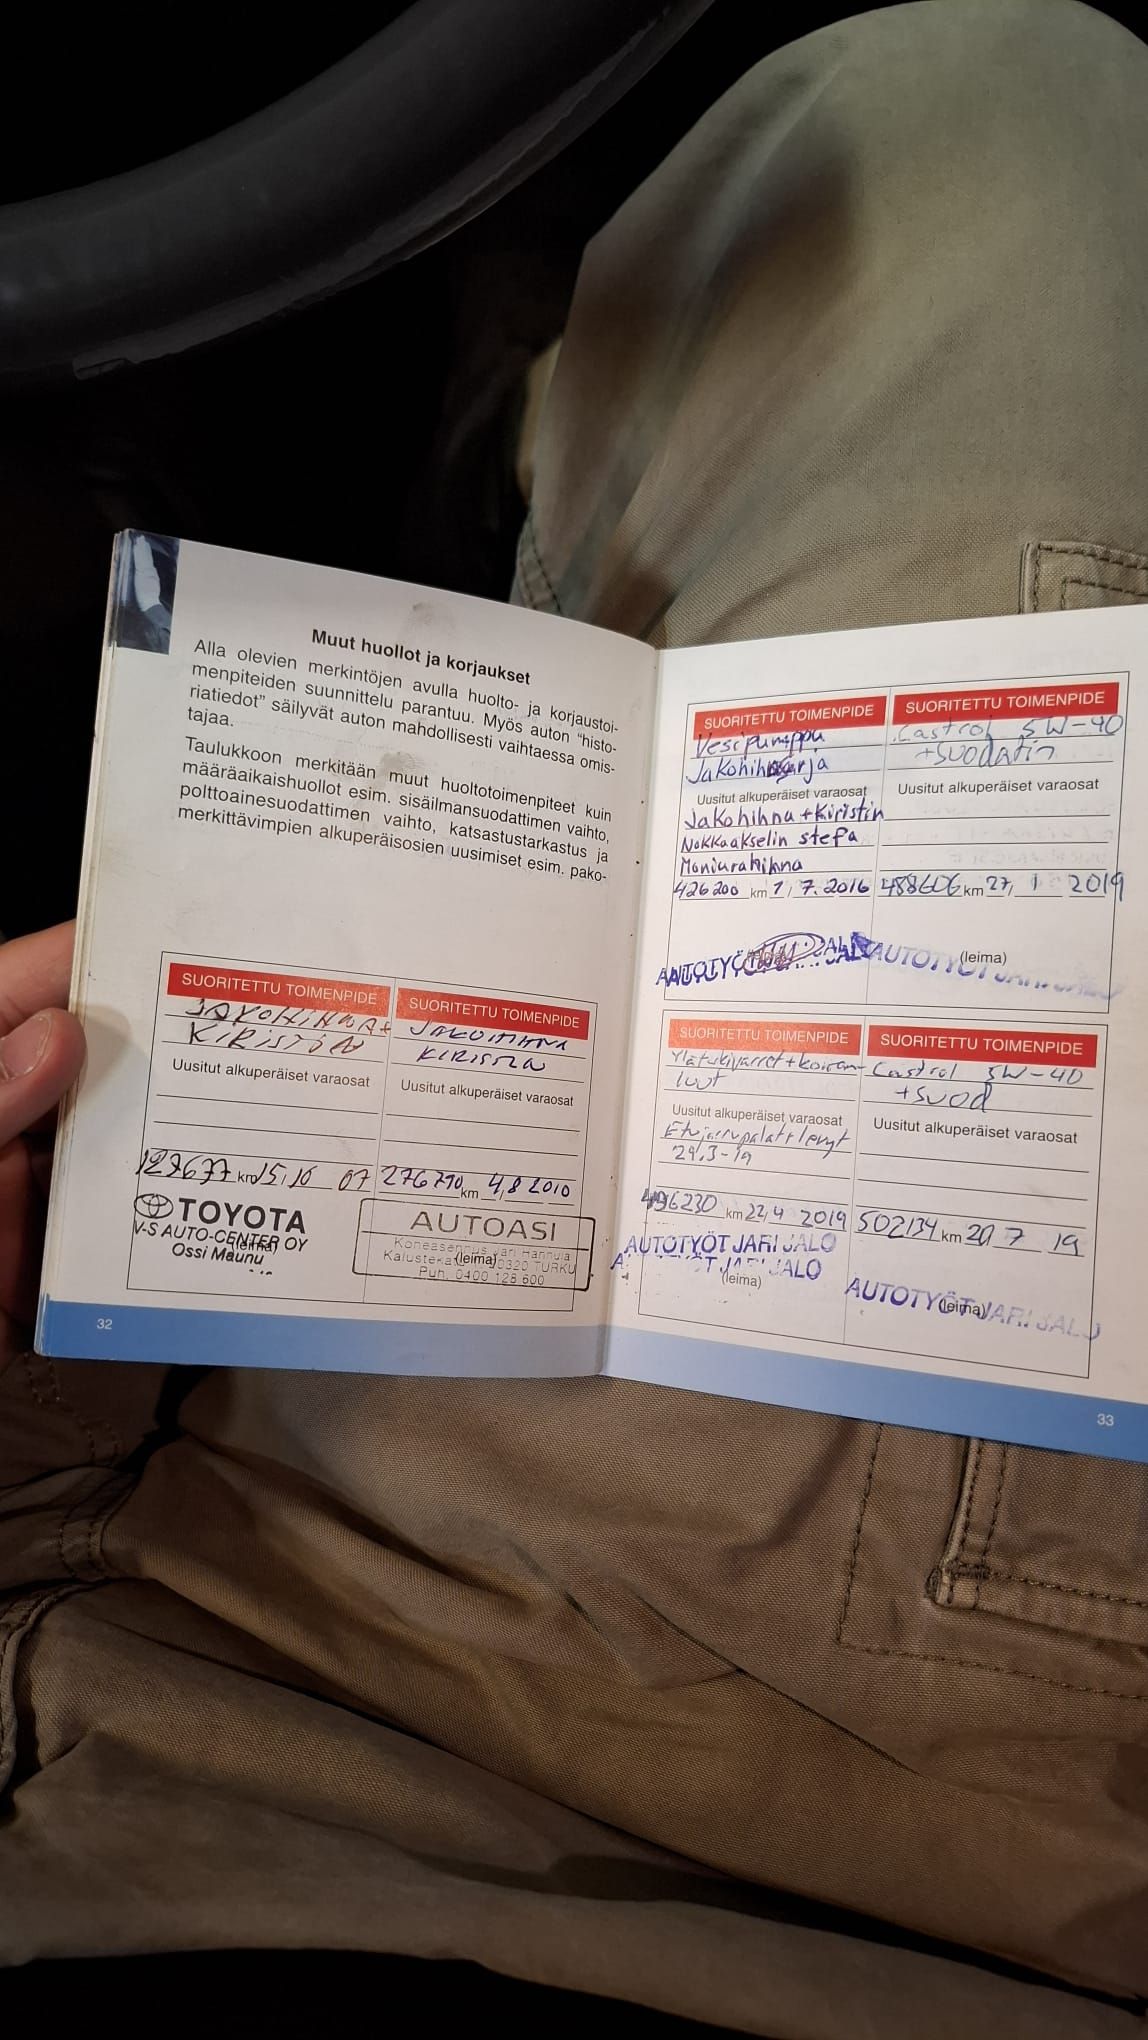 Muut huollot ja korjaukset
Alla olevien merkintöjen avulla huolto- ja korjaustoi-
menpiteiden suunnittelu parantuu. Myös auton "histo-
riatiedot" säilyvät auton mahdollisesti vaihtaessa omis-
tajaa.
Taulukkoon merkitään muut huoltotoimenpiteet kuin
määräaikaishuollot esim. sisäilmansuodattimen vaihto,
polttoainesuodattimen vaihto, katsastustarkastus ja
merkittävimpien alkuperäisosien uusimiset esim. pako-
SUORITETTU TOIMENPIDE
JAKOHIHNA+
KIRISTIN
Uusitut alkuperäiset varaosat
129677 km 15, 10 07
TOYOTA
V-S AUTO-CENTER OY
(leima)
Ossi Maunu
SUORITETTU TOIMENPIDE
JAKOHIHNA
Uusitut alkuperäiset varaosat
276790 km 4,8 2010
AUTOASI
Koneasennus Jari Hannula
(leima) 20320 TURKU
Puh. 0400 128 600
32
SUORITETTU TOIMENPIDE
Vesipumppu
Uusitut alkuperäiset varaosat
Jakohihna + Kiristin
Nokkaakselin stefa
Moniurahihna
426200 km 1, 7. 2016
AUTOTYÖT JALO
SUORITETTU TOIMENPIDE
Castrol 5W-40
+ Suodatin
Uusitut alkuperäiset varaosat
488606 km 27, 1 2019
(leima)
AUTOTYÖT JARI JALO
SUORITETTU TOIMENPIDE
Ylätukivarret + koiran-
luut
Uusitut alkuperäiset varaosat
Etujarrupalat + levyt
29.3-19
496230 km 22,4 2019
AUTOTYÖT JARI JALO
AUTOTYÖT JARI JALO
(leima)
SUORITETTU TOIMENPIDE
Castrol 5W-40
+ Suod
Uusitut alkuperäiset varaosat
502134 km 20 7 19
AUTOTYÖT JARI JALO
(leima)
33